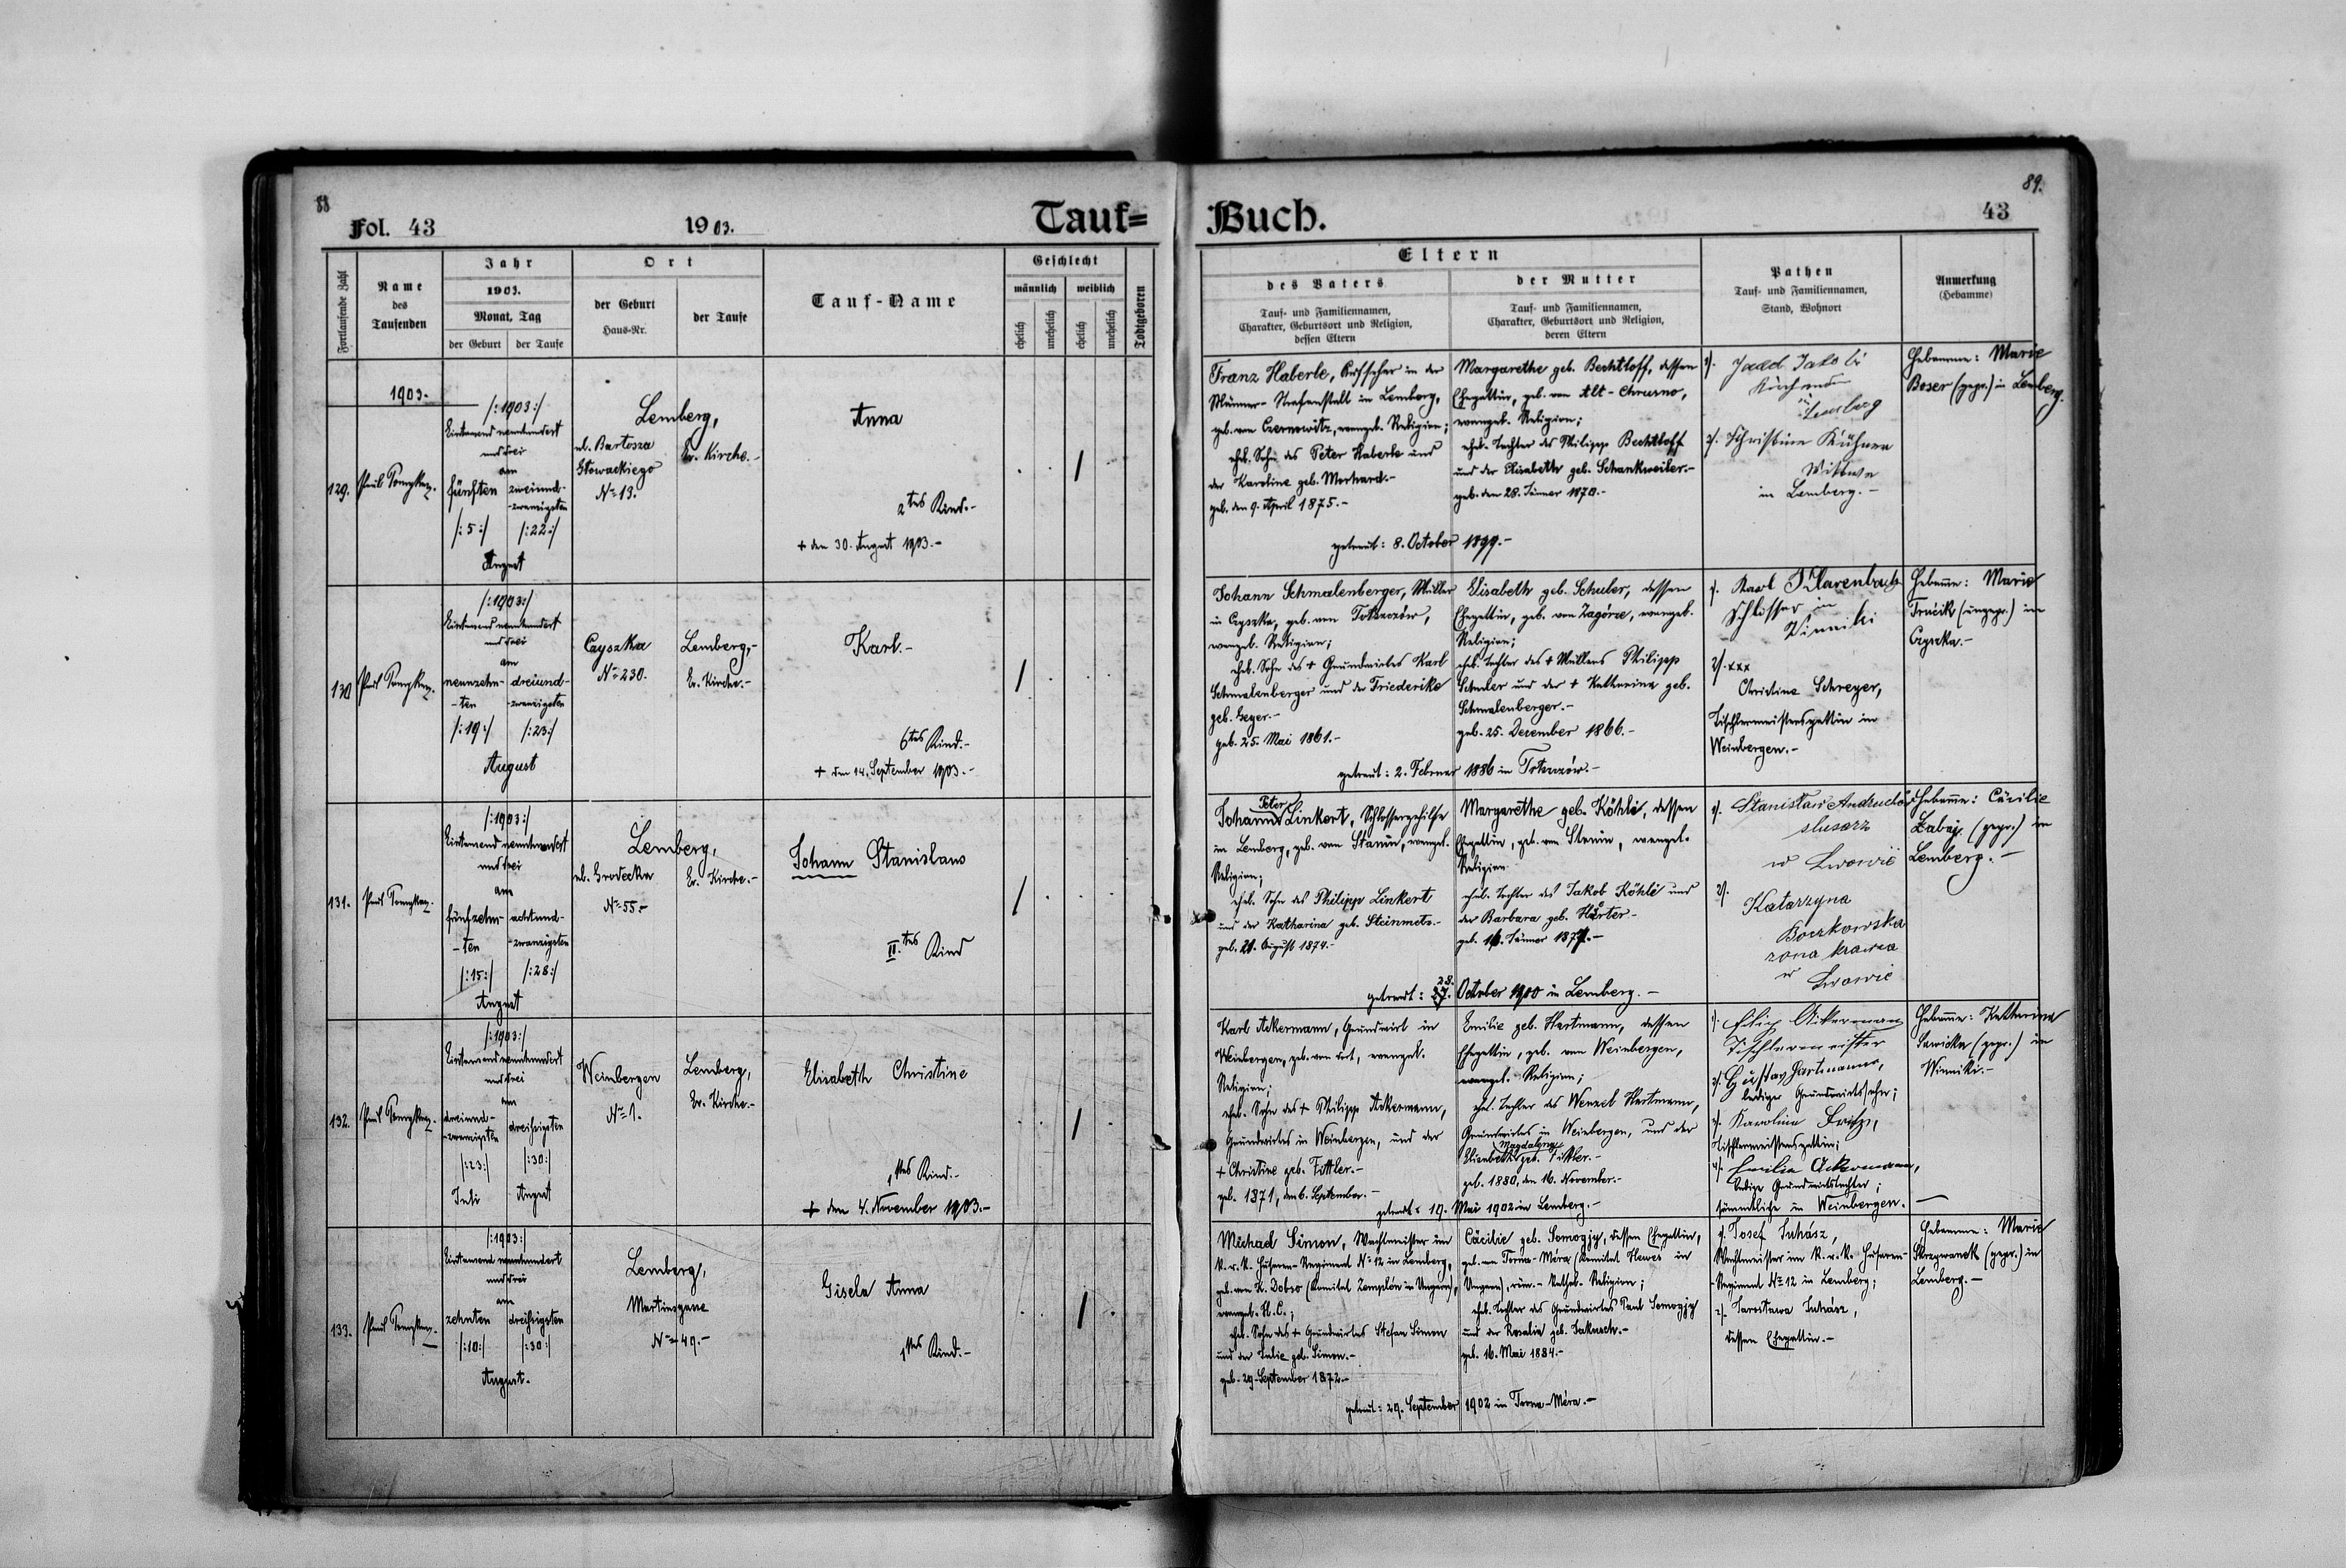 88
Fol. 43
1903.
Tauf=
Fortlaufende Zahl
Name
des
Taufenden
Jahr
1903.
Monat, Tag
der Geburt
der Taufe
Ort
der Geburt
Haus-Nr.
der Taufe
Tauf-Name
Geschlecht
männlich
weiblich
ehelich
unehelich
ehelich
unehelich
Todtgeboren
1903.
129.
/:1903:/
Eintausend neunhundert
und drei
am
fünften
zweiund-
-zwanzigsten
/:5:/
/:22:/
August
Lemberg,
ul. Bartosza
Głowackiego
No 13.
Ev. Kirche.-
Anna
2tes Kind.-
+ den 30. August 1903.-
130
/:1903:/
Eintausend neunhundert
und drei
am
neunzehn-
-ten
dreiund-
-zwanzigsten
/:19:/
/:23:/
August
Czyszka
No 230.
Lemberg,-
Ev. Kirche.-
Karl.-
6tes Kind.-
+ den 14. September 1903.-
131.
/:1903:/
Eintausend neunhundert
und drei
am
fünfzehn-
-ten
achtund-
-zwanzigsten
/:15:/
/:28:/
August
Lemberg,
ul. Grodecka
No 55.-
Ev. Kirche.-
Johann Stanislaus
II.tes Kind
132.
/:1903:/
Eintausend neunhundert
und drei
am
dreiund-
-zwanzigsten
dreißigsten
/:23:/
/:30:/
Juli
August
Weinbergen
No 1.
Lemberg,
Ev. Kirche.-
Elisabeth Christine
1tes Kind.-
+ den 4. November 1903.-
133.
/:1903:/
Eintausend neunhundert
und drei
am
zehnten
dreißigsten
/:10:/
/:30:/
August.
Lemberg,
Martinsgasse
No 49.-
Gisela Anna
1tes Kind.-
89.
Buch.
43
Eltern
des Vaters
Tauf- und Familiennamen,
Charakter, Geburtsort und Religion,
dessen Eltern
der Mutter
Tauf- und Familiennamen,
Charakter, Geburtsort und Religion,
deren Eltern
Pathen
Tauf- und Familiennamen,
Stand, Wohnort
Anmerkung
(Hebamme)
Franz Haberle, Aufseher in der
Männer-Strafanstalt in Lemberg,
geb. von Czernowitz, evangel. Religion;
ehel. Sohn des Peter Haberle und
der Karoline geb.
geb. den 9. April 1875.-
Margarethe geb. Bechtloff, dessen
Ehegattin, geb. von Alt-Chrusno,
evangel. Religion;
ehel. Tochter des Philipp Bechtloff
und der Elisabeth geb. Schankweiler.-
geb. den 28. Jänner 1870.-
getraut: 8. October 1899.-
1).
Lemberg
2). Christine Kühner
Wittwe
in Lemberg.-
Hebamme: Marie
Beser (gepr.) in Lemberg.
Johann Schmalenberger, Müller
in Czyszka, geb. von
evangel. Religion;
ehel. Sohn des + Grundwirtes Karl
Schmalenberger und der Friederike
geb. Geyer.-
geb. 25. Mai 1861.-
Elisabeth geb. Schuler, dessen
Ehegattin, geb. von Zagórze, evangel.
Religion;
ehel. Tochter des + Müllers Philipp
Schuler und der + Katharina geb.
Schmalenberger.-
geb. 25. Dezember 1866.-
getraut: 2. Februar 1886 in
1. Karl Klarenbach
Schlosser in
Winniki
2). xxx
Christine Schreyer,
Tischlermeistersgattin in
Weinbergen.-
Hebamme: Marie
(ungepr.) in
Czyszka.-
Peter
Johann Linkert, Schlossergehilfe
in Lemberg, geb. von Stanin, evangel.
Religion;
ehel. Sohn des Philipp Linkert
und der Katharina geb. Steinmetz.-
geb. 21. August 1874.-
Margarethe geb. Köhle, dessen
Ehegattin, geb. von Stanin, evangel.
Religion
ehel. Tochter des Jakob Köhle und
der Barbara geb. Härter-
geb. 16. Jänner 1877.-
28.
getraut: 27. October 1900 in Lemberg.-
1). Stanisław
slusarz
w Lwowie
2).
Katarzyna
Boczkowska
zona krawca
w Lwowie
Hebamme: Cäcilie
Zabaj, (gepr.) in
Lemberg.-
Karl Ackermann, Grundwirt in
Weinbergen, geb. von dort, evangel.
Religion;
ehel. Sohn des + Philipp Ackermann,
Grundwirtes in Weinbergen, und der
+ Christine geb. Fittler.-
geb. 1871, den 6. September.-
Emilie geb. Hartmann, dessen
Ehegattin, geb. von Weinbergen,
evangel. Religion;
ehel. Tochter des Wenzel Hartmann,
Grundwirtes in Weinbergen, und der
Magdalena
Elisabeth geb. Fittler.-
geb. 1880, den 16. November.-
getraut: 19. Mai 1902 in Lemberg.-
1). Filip Ackermann
Tischlermeister
2). Gustav Hartmann,
lediger Grundwirtssohn;
3). Karolina Fritz,
Tischlermeistersgattin;
4). Emilia Ackermann,
ledige Grundwirtstochter;
sämmtliche in Weinbergen.
Hebamme: Katharina
Sawicka (gepr.) in
Winniki.-
Michael Simon, Wachtmeister im
K.u.K. Husaren-Regiment No 12 in Lemberg,
geb. von K. Dobso (Komitat Zemplén in Ungarn),
evangel. H.C.;
ehel. Sohn des + Grundwirtes Stefan Simon
und der Julie geb. Simon.-
geb. 29. September 1872.-
Cäcilie geb. Somogyi, dessen Ehegattin,
geb. von Torna-Méra (Komitat Heves in
Ungarn), röm.-kathol. Religion;
ehel. Tochter des Grundwirtes Paul Somogyi
und der Rosalia geb.
geb. 16. Mai 1884.-
getraut: 29. September 1902 in Torna-Méra.-
1. Josef Juhász,
Wachtmeister im K.u.K. Husaren-
-Regiment No 12 in Lemberg;
2). Jarosława Juhász,
dessen Ehegattin.-
Hebamme: Marie
(gepr.) in
Lemberg.-